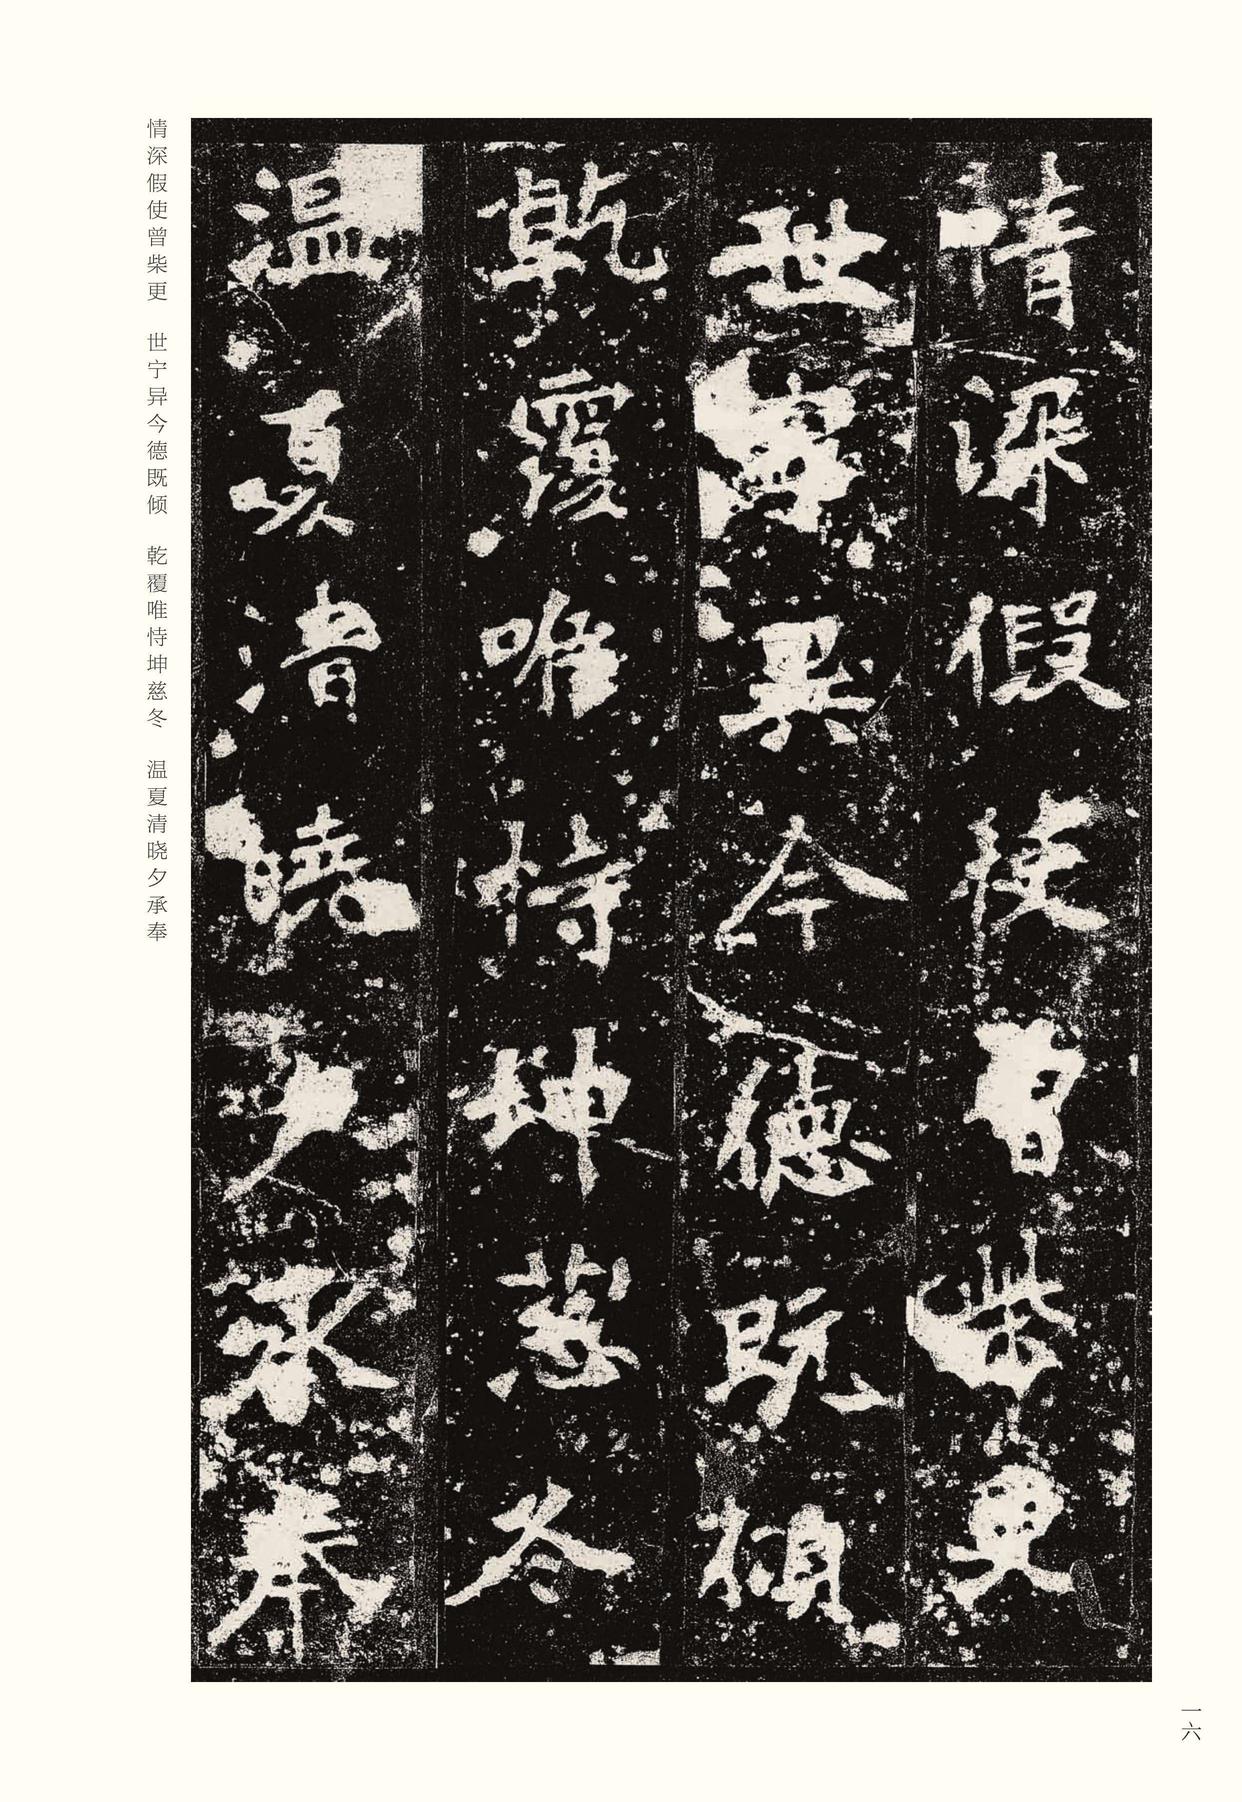 情深假使曾柴更
世寧異今德既傾
乾覆唯恃坤慈冬
温夏清曉夕承奉
情深假使曾柴更 世宁异今德既倾 乾覆唯恃坤慈冬 温夏清晓夕承奉
一六